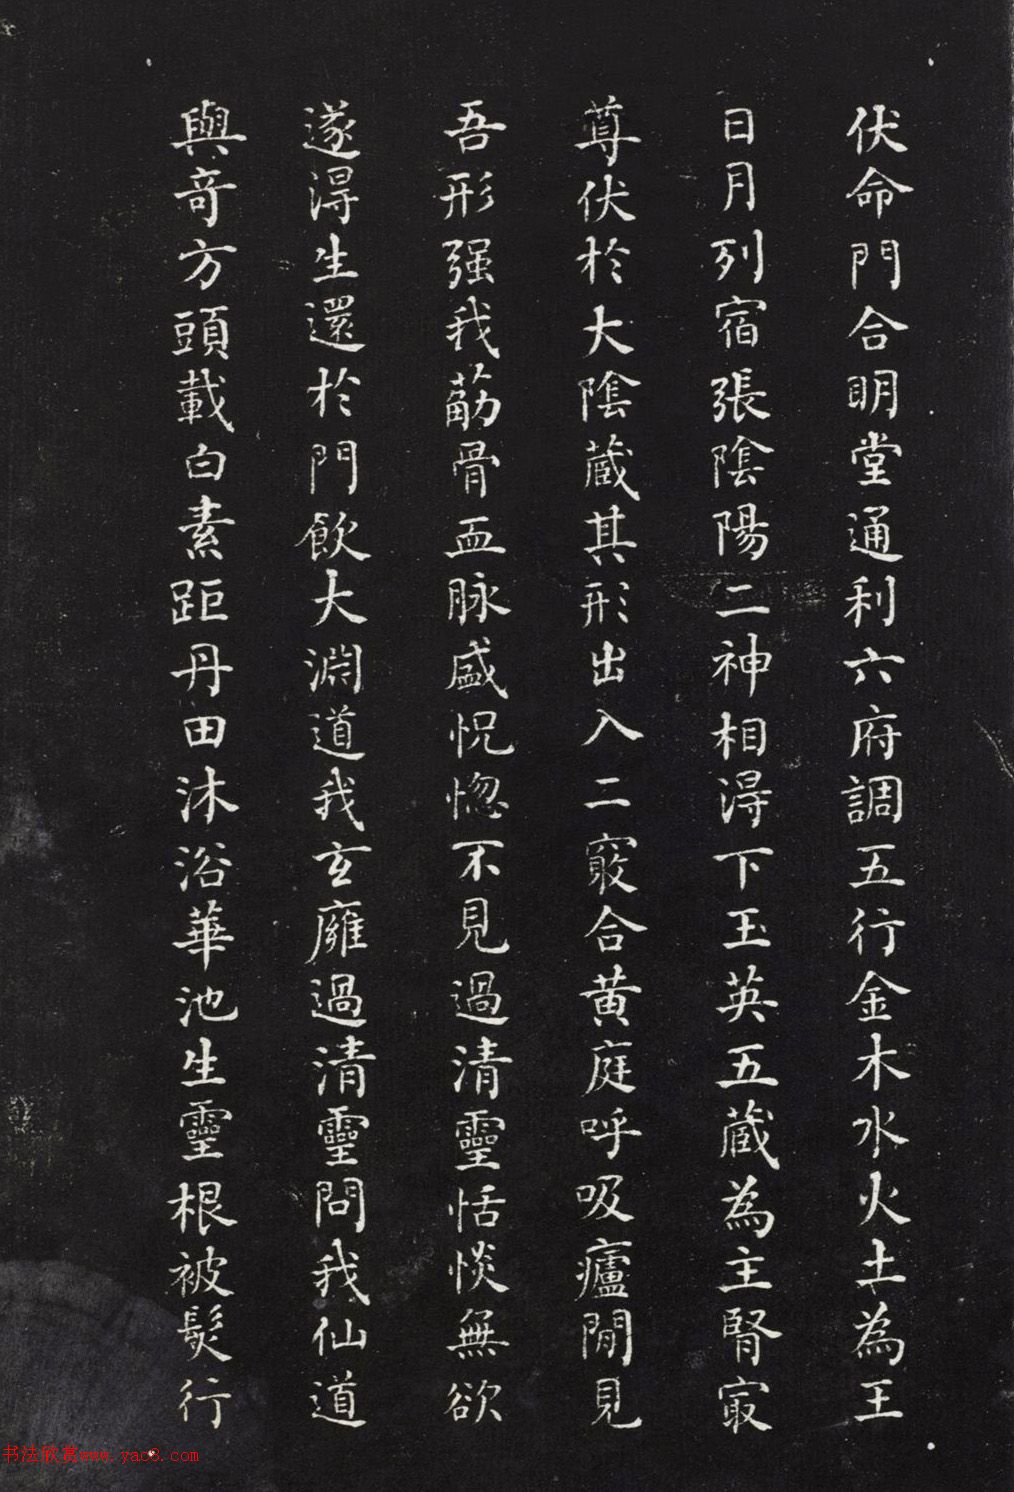 伏命門合明堂通利六府調五行金木水火土為王
日月列宿張陰陽二神相得下玉英五藏為主腎㝡
尊伏於大陰藏其形出入二竅合黄庭呼吸廬閒見
吾形强我筋骨血脉盛怳惚不見過清靈恬惔無欲
遂得生還於門飲大淵道我玄廱過清靈問我仙道
與奇方頭載白素距丹田沐浴華池生靈根被髮行
书法欣赏www.yac8.com